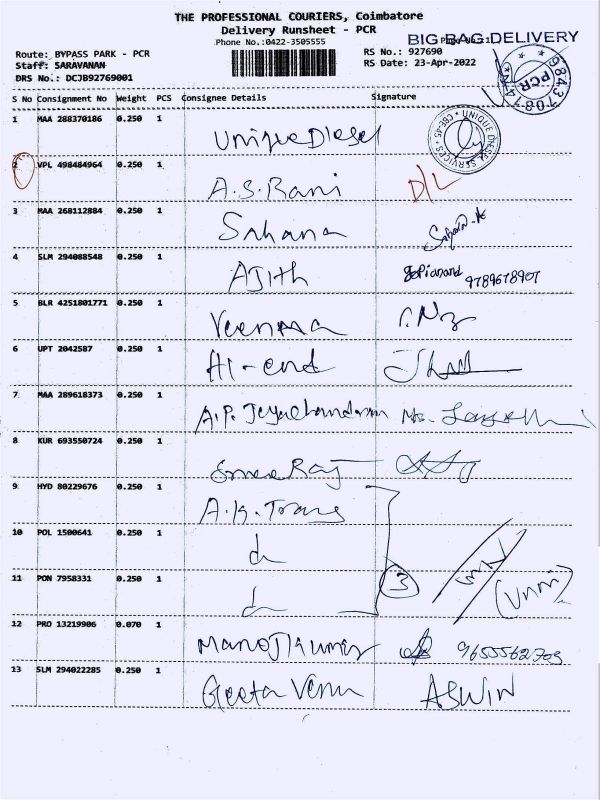 THE PROFESSIONAL COURIERS, Coimbatore
Delivery Runsheet - PCR
Phone No.:0422-3505555
BIG BAG DELIVERY
Route: BYPASS PARK - PCR
RS No.: 927690
Staff: SARAVANAN
RS Date: 23-Apr-2022
DRS No.: DCJB92769001
PCR
S No Consignment No Weight PCS Consignee Details Signature
1 MAA 288370186 0.250 1 Unique Diesel
UNIQUE DIESEL SERVICES CBE-45
2 VPL 498484964 0.250 1 A.S. Rani D/L
3 MAA 268112884 0.250 1 Sahana
4 SLM 294088548 0.250 1 AJith Gopianand 9789678907
5 BLR 4251801771 0.250 1 Veenaa
6 UPT 2042587 0.250 1 HI-end
7 MAA 289618373 0.250 1 A.P. Jeyachandran
8 KUR 693550724 0.250 1
9 HYD 80229676 0.250 1 A.K. Trans
10 POL 1500641 0.250 1
11 PON 7958331 0.250 1 3
12 PRO 13219906 0.070 1 Manoj Kumar 9655562703
13 SLM 294022285 0.250 1 Geeta Venu ASWIN